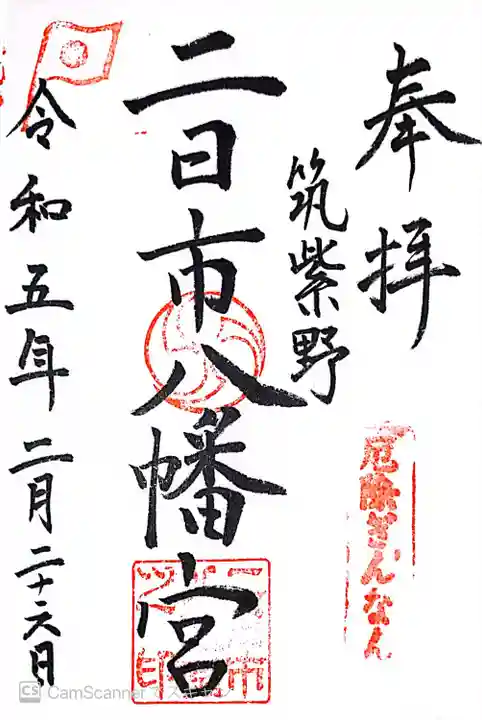 奉拝
筑紫野
二日市八幡宮
令和五年二月二十六日
厄除ぎんなん
CS CamScannerでスキャン